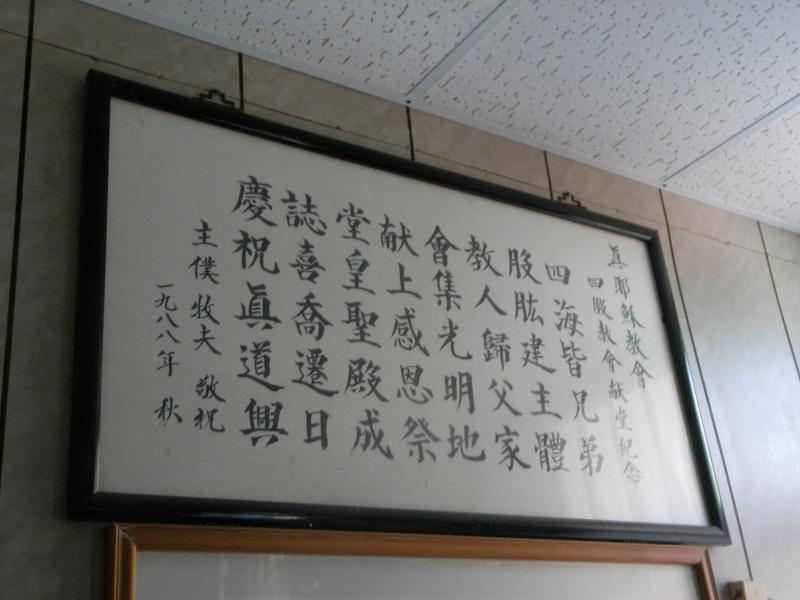 真耶穌教會
四股教會献堂紀念
四海皆兄弟
股肱建主體
教人歸父家
會集光明地
献上感恩祭
堂皇聖殿成
誌喜喬遷日
慶祝眞道興
主僕牧夫 敬祝
一九八八年 秋